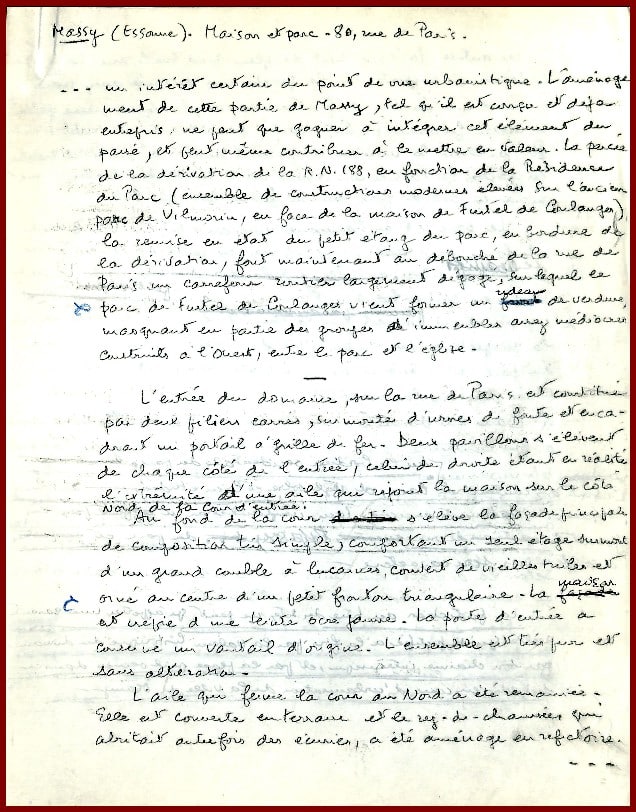 Massy (Essonne). Maison et parc - 80, rue de Paris.
--- un intérêt certain du point de vue urbanistique. L'aménage
ment de cette partie de Massy, tel qu'il est conçu et déjà
entrepris, ne peut que gagner à intégrer cet élément du
passé, et peut même contribuer à le mettre en valeur. La percée
de la dérivation de la R.N. 188, en fonction de la Résidence
du Parc (ensemble de constructions modernes élevées sur l'ancien
parc de Vilmorin, en face de la maison de Fustel de Coulanges),
la remise en état du petit étang du parc, en bordure de
la dérivation, font maintenant au débouché de la rue de
Paris un carrefour routier largement dégagé, sur lequel le
parc de Fustel de Coulanges vient former un rideau de verdure,
masquant en partie des groupes d'immeubles assez médiocres
construits à l'Ouest, entre le parc et l'église.
L'entrée du domaine, sur la rue de Paris est constituée
par deux piliers carrés, surmonté d'urnes de fonte et enca-
drant un portail à grille de fer. Deux pavillons s'élèvent
de chaque côté de l'entrée, celui de droite étant en réalité
l'extrémité d'une aile qui rejoint la maison sur le côté
Nord de la cour d'entrée.
Au fond de la cour s'élève la façade principale
de composition très simple, comportant un seul étage surmonté
d'un grand comble à lucarnes, couvert de vieilles tuiles et
orné au centre d'un petit fronton triangulaire. La maison
est crépie d'une teinte ocre jaune. La porte d'entrée a
conservé un vantail d'origine. L'ensemble est très pur et
sans altération.
L'aile qui ferme la cour au Nord a été remaniée.
Elle est couverte en terrasse et le rez-de-chaussée qui
abritait autrefois des écuries, a été aménagé en réfectoire.
---